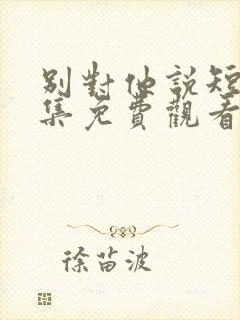 別對他說短
集免費觀看
徐苗波